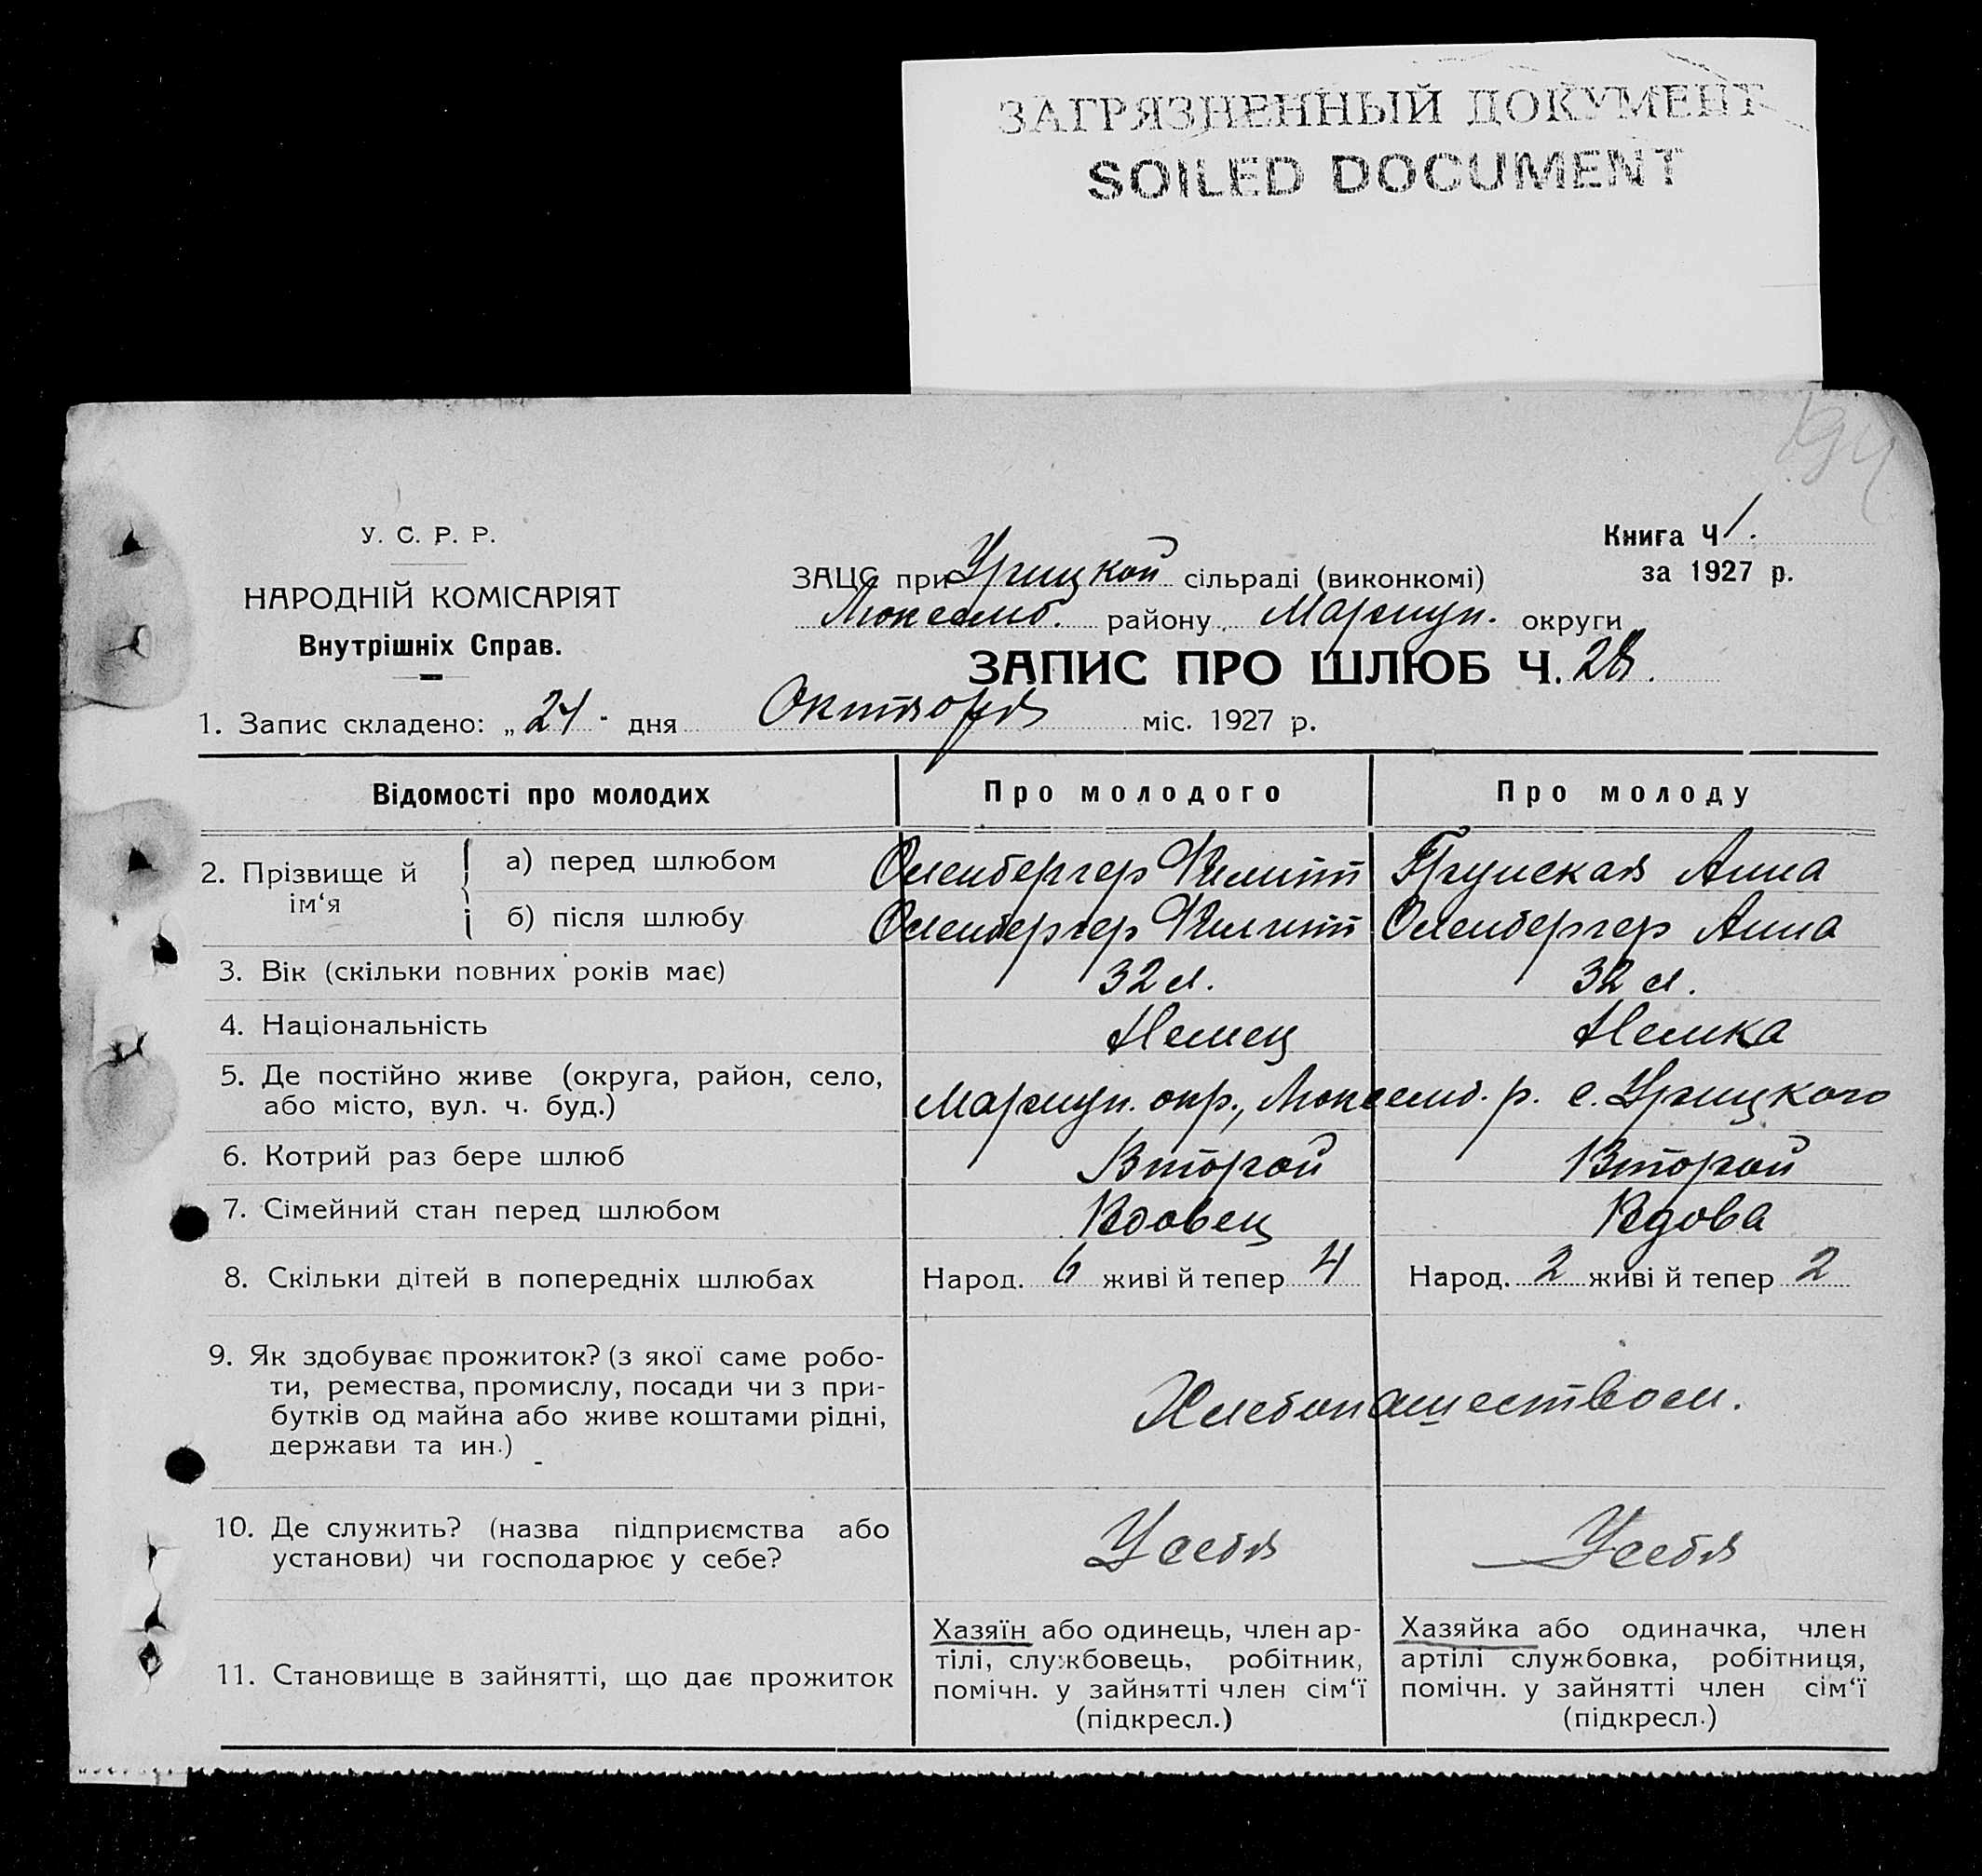 ЗАГРЯЗНЕННЫЙ ДОКУМЕНТ
SOILED DOCUMENT
194
У. С. Р. Р.
НАРОДНІЙ КОМІСАРІЯТ
Внутрішніх Справ.
Книга Ч 1.
за 1927 р.
ЗАЦС при Урицкой сільраді (виконкомі)
Люксемб. району Мариуп. округи
ЗАПИС ПРО ШЛЮБ Ч. 28.
1. Запис складено: „24" дня Октября міс. 1927 р.
Відомості про молодих Про молодого Про молоду
2. Прізвище й ім‘я
а) перед шлюбом Оленбергер Филипп Грунская Анна
б) після шлюбу Оленбергер Филипп Оленбергер Анна
3. Вік (скільки повних років має) 32 л. 32 л.
4. Національність Немец Немка
5. Де постійно живе (округа, район, село,
або місто, вул. ч. буд.) Мариуп. окр., Люксемб. р. с. Урицкого
6. Котрий раз бере шлюб Второй Второй
7. Сімейний стан перед шлюбом Вдовец Вдова
8. Скільки дітей в попередніх шлюбах Народ. 6 живі й тепер 4 Народ. 2 живі й тепер 2
9. Як здобуває прожиток? (з якої саме робо-
ти, ремества, промислу, посади чи з при-
бутків од майна або живе коштами рідні,
держави та ин.)
Хлебопашеством.
10. Де служить? (назва підприємства або
установи) чи господарює у себе?
У себя У себя
11. Становище в зайнятті, що дає прожиток
Хазяїн або одинець, член ар-
тілі, службовець, робітник,
помічн. у зайнятті член сім‘ї
(підкресл.)
Хазяйка або одиначка, член
артілі службовка, робітниця,
помічн. у зайнятті член сім‘ї
(підкресл.)